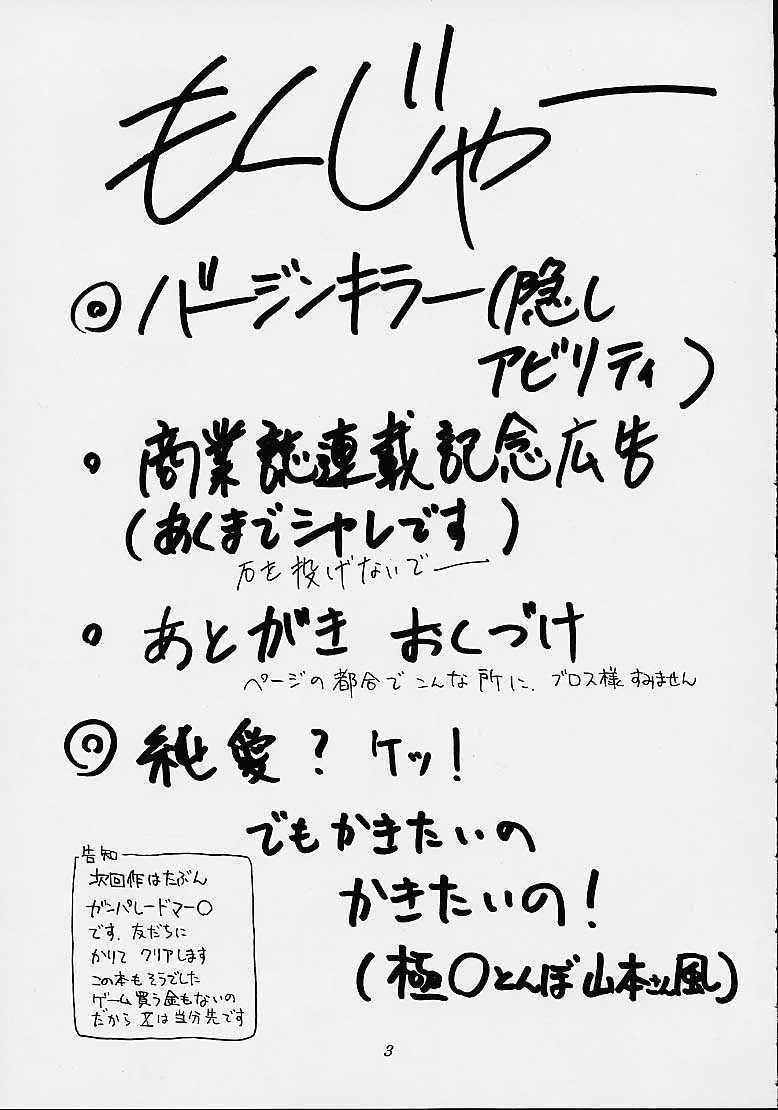 もくじゃー
◎バージンキラー(隠し
アビリティ)
・商業誌連載記念広告
(あくまでシャレです)
石を投げないでー
・あとがき おくづけ
ページの都合でこんな所に、ブロス様すみません
◎純愛?ケッ!
でもかきたいの
かきたいの!
(極○とんぼ山本さん風)
告知
次回作はたぶん
ガンパレードマー○
です、友だちに
かりてクリアします
この本もそうでした
ゲーム買う金もないの
だからXは当分先です
3